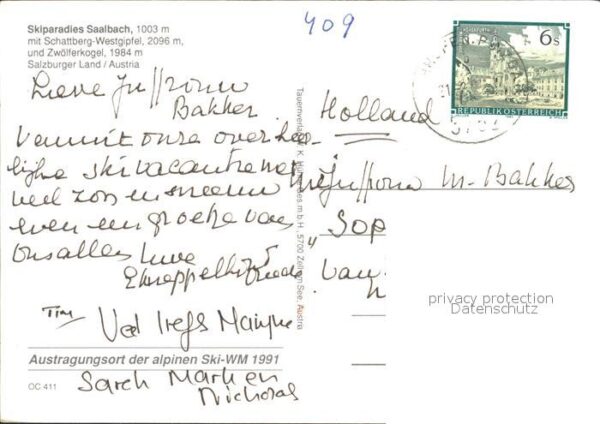 Skiparadies Saalbach, 1003 m
mit Schattberg-Westgipfel, 2096 m,
und Zwölferkogel, 1984 m
Salzburger Land / Austria
409
6s
REPUBLIK ÖSTERREICH
Lieve Juffrouw
Bakker
Vanuit onze overheer-
lijke skivacantie met
veel zon en sneeuw
even een groetje van
ons allen
Tim
Sarah Marleen
Nicholas
Holland
Juffrouw M. Bakker
Sop
van
Tauernverlag K. 5700 Zell am See, Austria
privacy protection
Datenschutz
Austragungsort der alpinen Ski-WM 1991
OC 411